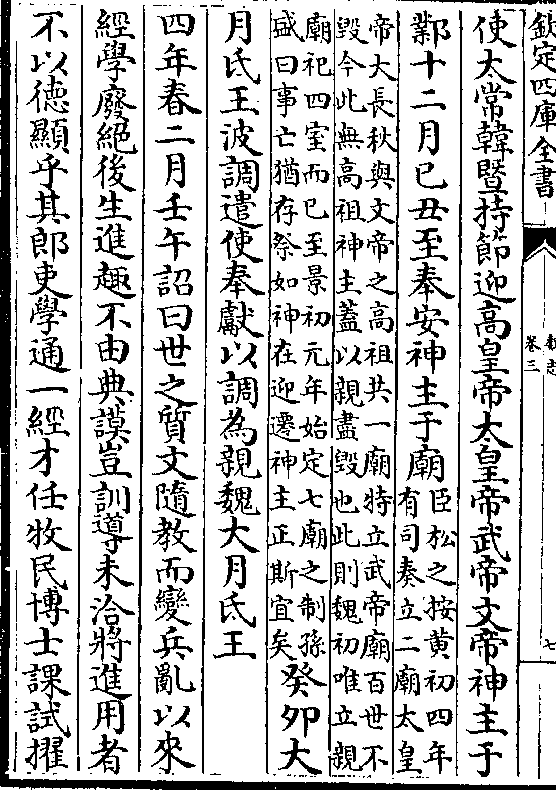 欽定四庫全書
魏志
卷三
七
使太常韓暨持節迎高皇帝太皇帝武帝文帝神主于
鄴十二月己丑至奉安神主于廟
臣松之按黄初四年
有司奏立二廟太皇
帝大長秋與文帝之高祖共一廟特立武帝廟百世不
毀今此無高祖神主蓋以親盡毀也此則魏初唯立親
廟祀四室而已至景初元年始定七廟之制孫
盛曰事亡猶存祭如神在迎遷神主正斯宜矣
癸卯大
月氏王波調遣使奉獻以調為親魏大月氐王
四年春二月壬午詔曰世之質文隨教而變兵亂以來
經學廢絶後生進趣不由典謨豈訓導未洽將進用者
不以德顯乎其郎吏學通一經才任牧民博士課試擢